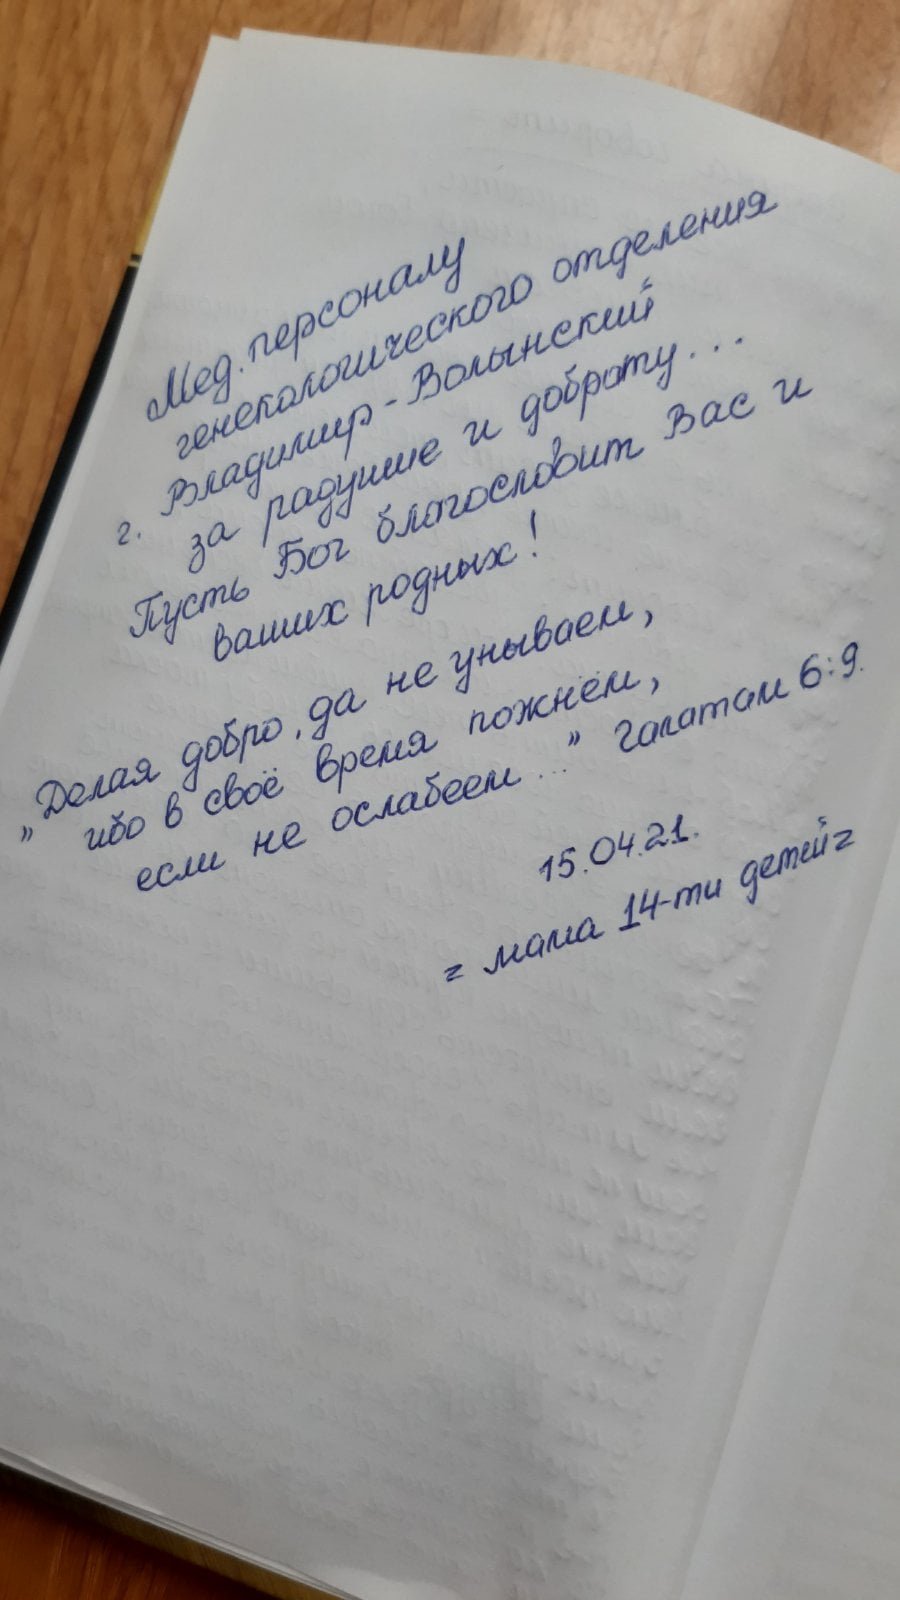 Мед. персоналу
генекологического отделения
г. Владимир-Волынский
за радушие и доброту...
Пусть Бог благословит Вас и
ваших родных!
„Делая добро, да не унываем,
ибо в своё время пожнём,
если не ослабеем..." Галатам 6:9.
15.04.21.
= мама 14-ти детей =